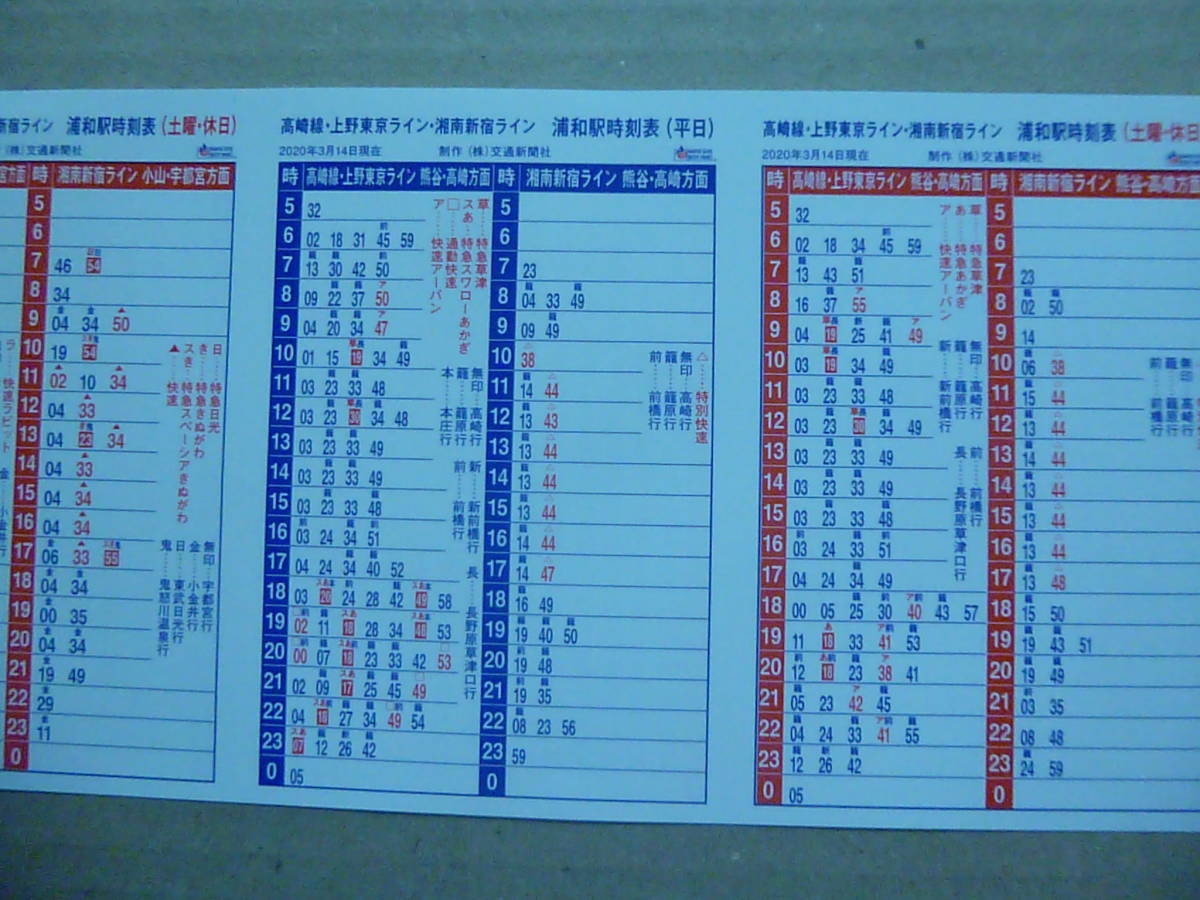 新宿ライン 浦和駅時刻表(土曜・休日)
(株)交通新聞社
宮方面 時 湘南新宿ライン 小山・宇都宮方面
5
6
7 46 54
8 34
9 04 34 50
10 19 54
11 02 10 34
12 04 33
13 04 23 34
14 04 33
15 04 34
16 04 34
17 06 33 55
18 04 34
19 00 35
20 04 34
21 19 49
22 29
23 11
0
日……特急日光
き……特急きぬがわ
スき…特急スペーシアきぬがわ
▲……快速
無印…宇都宮行
金……小金井行
日……東武日光行
鬼……鬼怒川温泉行
高崎線・上野東京ライン・湘南新宿ライン 浦和駅時刻表(平日)
2020年3月14日現在 制作(株)交通新聞社
時 高崎線・上野東京ライン 熊谷・高崎方面
5 32
6 02 18 31 45 59
7 13 30 42 50
8 09 22 37 50
9 04 20 34 47
10 01 15 19 34 49
11 03 23 33 48
12 03 23 30 34 48
13 03 23 33 49
14 03 23 33 49
15 03 23 33 48
16 03 24 34 51
17 04 24 34 40 52
18 03 20 24 28 42 49 58
19 02 11 18 28 34 48 53
20 00 07 18 23 33 42 53
21 02 09 17 25 45 49
22 04 18 27 34 49 54
23 07 12 26 42
0 05
草……特急草津
スあ…特急スワローあかぎ
□……通勤快速
ア……快速アーバン
無印…高崎行
籠……籠原行
本……本庄行
新……新前橋行
前……前橋行
長……長野原草津口行
時 湘南新宿ライン 熊谷・高崎方面
5
6
7 23
8 04 33 49
9 09 49
10 38
11 14 44
12 13 43
13 13 44
14 13 44
15 13 44
16 14 44
17 14 47
18 16 49
19 19 40 50
20 19 48
21 19 35
22 08 23 56
23 59
0
△……特別快速
無印…高崎行
籠……籠原行
前……前橋行
高崎線・上野東京ライン・湘南新宿ライン 浦和駅時刻表(土曜・休日
2020年3月14日現在 制作(株)交通新聞社
時 高崎線・上野東京ライン 熊谷・高崎方面
5 32
6 02 18 34 45 59
7 13 43 51
8 16 37 55
9 04 19 25 41 49
10 03 19 34 49
11 03 23 33 48
12 03 23 30 34 49
13 03 23 33 49
14 03 23 33 49
15 03 23 33 48
16 03 24 33 51
17 04 24 34 49
18 00 05 25 30 40 43 57
19 11 18 33 41 53
20 12 18 23 38 41
21 05 23 42 45
22 04 24 33 41 55
23 12 26 42
0 05
草……特急草津
あ……特急あかぎ
ア……快速アーバン
無印…高崎行
籠……籠原行
新……新前橋行
前……前橋行
長……長野原草津口行
時 湘南新宿ライン 熊谷・高崎方面
5
6
7 23
8 02 50
9 14
10 06 38
11 15 44
12 13 44
13 14 44
14 13 44
15 13 44
16 13 44
17 13 48
18 15 50
19 19 43 51
20 19 49
21 03 35
22 08 48
23 24 59
0
無印…高崎行
籠……籠原行
前……前橋行